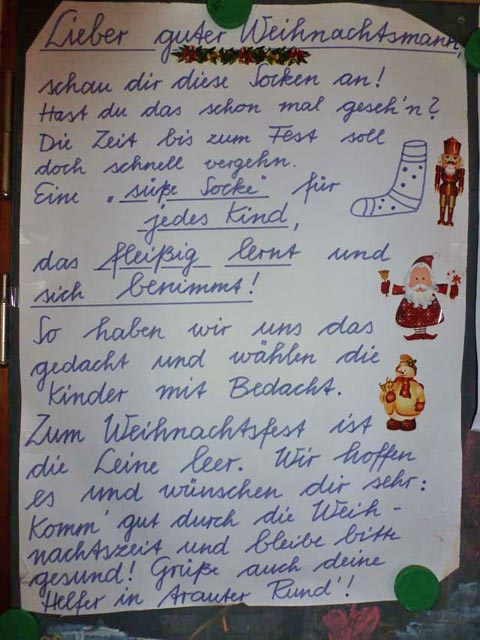 Lieber guter Weihnachtsmann,
schau dir diese Socken an!
Hast du das schon mal geseh'n?
Die Zeit bis zum Fest soll
doch schnell vergehn.
Eine „süße Socke" für
jedes Kind,
das fleißig lernt und
sich benimmt!
So haben wir uns das
gedacht und wählen die
Kinder mit Bedacht.
Zum Weihnachtsfest ist
die Leine leer. Wir hoffen
es und wünschen dir sehr:
Komm' gut durch die Weih-
nachtszeit und bleibe bitte
gesund! Grüße auch deine
Helfer in Arauter Rund'!